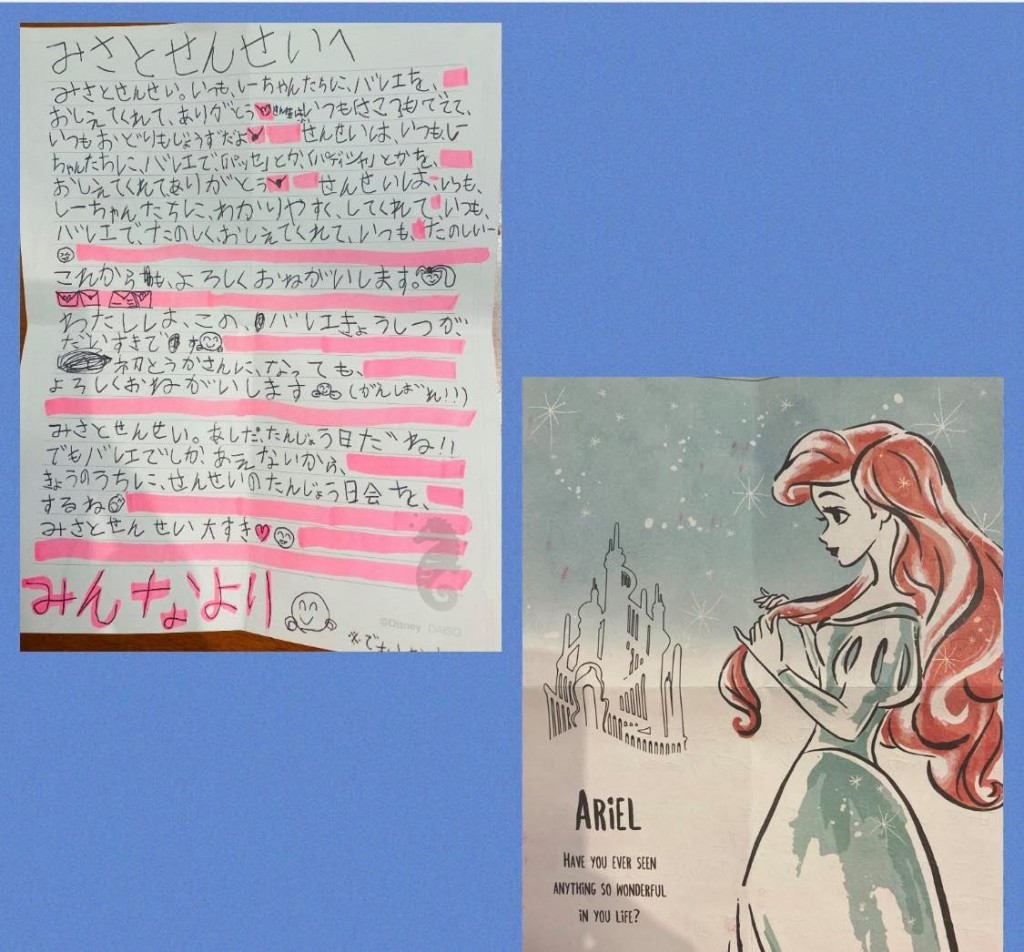 みさとせんせいへ
みさとせんせい。いつも、しーちゃんたちに、バレエを、
おしえてくれて、ありがとう いつも
いつもおどりもじょうずだよ せんせいは、いつも、しー
ちゃんたちに、バレエで、「パッセ」とか、「パディシャ」とかを、
おしえてくれてありがとう せんせいは、いつも、
しーちゃんたちに、わかりやすく、してくれて、いつも、
バレエで、たのしく、おしえてくれて、いつも、たのしいー
これからも、よろしくおねがいします。
わたしは、この、バレエきょうしつが、
だいすきで ね
初とうかさんに、なっても、
よろしくおねがいします (がんばれ!!)
みさとせんせい。あしだ、たんじょう日だね!!
でもバレエでしか、あえないから、
きょうのうちに、せんせいのたんじょう日会を、
するね
みさとせんせい大すき♥
みんなより
©Disney DAISO
ARIEL
HAVE YOU EVER SEEN
ANYTHING SO WONDERFUL
IN YOU LIFE?